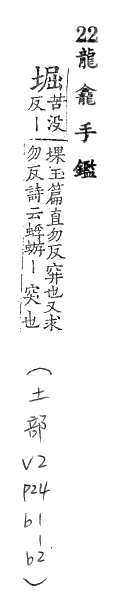 22龍龕手鑑
堀苦没反丨塚玉篇直勿反穿也又求勿反詩云蜉蝣丨丨突也
(土部v2p24b1-b2)